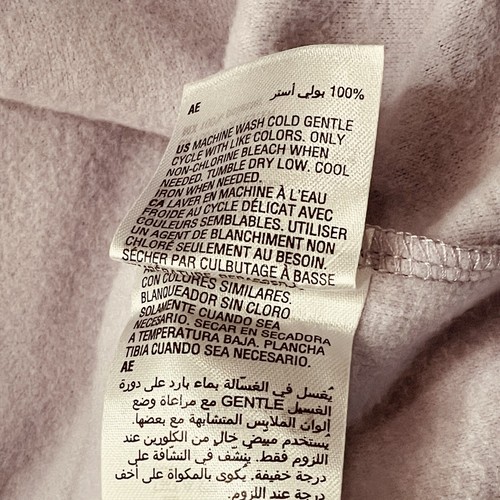 AE
100% بولي أستر
US MACHINE WASH COLD GENTLE
CYCLE WITH LIKE COLORS. ONLY
NON-CHLORINE BLEACH WHEN
NEEDED. TUMBLE DRY LOW. COOL
IRON WHEN NEEDED.
CA LAVER EN MACHINE À L'EAU
FROIDE AU CYCLE DÉLICAT AVEC
COULEURS SEMBLABLES. UTILISER
UN AGENT DE BLANCHIMENT NON
CHLORÉ SEULEMENT AU BESOIN.
SÉCHER PAR CULBUTAGE À BASSE
CON COLORES SIMILARES.
BLANQUEADOR SIN CLORO
SOLAMENTE CUANDO SEA
NECESARIO. SECAR EN SECADORA
A TEMPERATURA BAJA. PLANCHA
TIBIA CUANDO SEA NECESARIO.
AE
يُغسل في الغسّالة بماء بارد على دورة
الغسيل GENTLE مع مراعاة وضع
ألوات الملابس المتشابهة مع بعضها.
يُستخدم مبيّض خالٍ من الكلورين عند
اللزوم فقط. يُنشّف في النشّافة على
درجة خفيفة. يُكوى بالمكواة على أخف
درجة عند اللزوم.